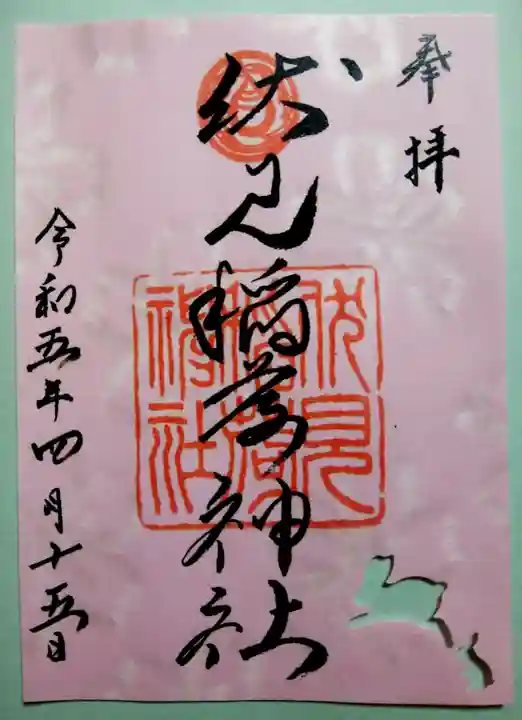 奉拝
伏見稲荷神社
伏見稲荷神社
令和五年四月十五日